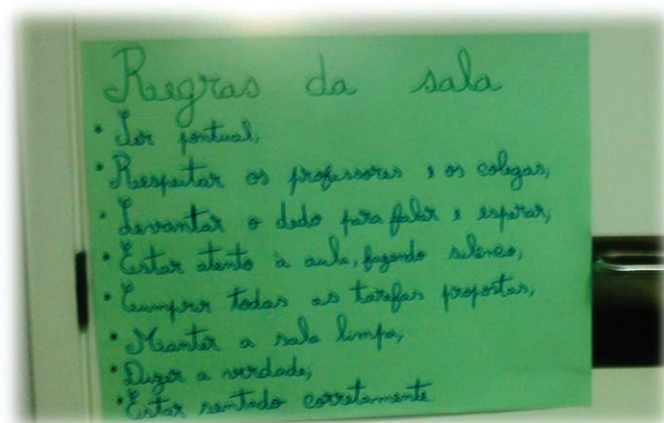 Regras da sala
• Ser pontual;
• Respeitar os professores e os colegas;
• Levantar o dedo para falar e esperar;
• Estar atento à aula, fazendo silêncio;
• Cumprir todas as tarefas propostas;
• Manter a sala limpa;
• Dizer a verdade;
• Estar sentado corretamente.